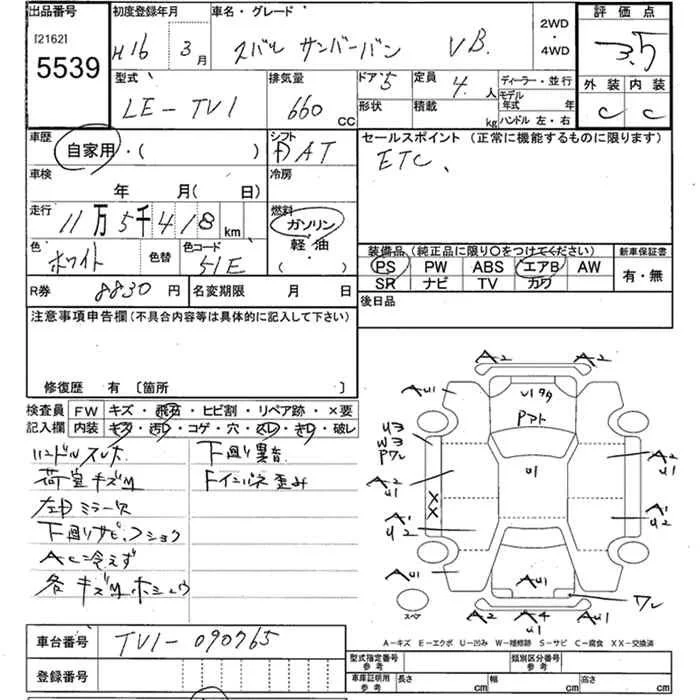 出品番号 [2162] 5539
初度登録年月 H16年 3月
車名・グレード スバル サンバーバン VB.
2WD・4WD
評価点 3.5
型式 LE-TV1
排気量 660 CC
ドア 5
定員 4. 人
形状
積載 kg
ディーラー・並行
モデル年式 年
ハンドル 左・右
外装 C
内装 C
車歴 自家用・( )
シフト FAT
セールスポイント (正常に機能するものに限ります)
ETC、
車検 年 月( 日)
冷房
走行 11万5千418km
燃料 ガソリン 軽・油 ・( )
色 ホワイト
色替
色コード 51E
装備品 (純正品に限り○をつけてください)
新車保証書
PS PW ABS エアB AW
有・無
SR ナビ TV カワ
R券 8830円
名変期限 月 日
後日品
注意事項申告欄(不具合内容等は具体的に記入して下さい)
修復歴 有 〔箇所 〕
検査員記入欄
FW キズ・飛石・ヒビ割・リペア跡・×要
内装 キズ・汚レ・コゲ・穴・スレ・キレ・破レ
ハンドルスレホ
下廻リ異音
荷室キズM
Fインパネ歪み
左右ミラー欠
下廻リサビ、フショク
AC冷えず
各キズMホシュウ
A2 A2
AU1
V1タタ
Pアト
U3
W3
Pワレ
A2
U1
U1
A2
U1
X
X
A1
U2
A2
AU1
AU1
AU1
ワレ
スペア
A2 A4 U1 AU1
A-キズ E-エクボ U-凹み W-補修跡 S-サビ C-腐食 XX-交換済
車台番号 TV1-090765
登録番号
型式指定番号 参考
類別区分番号 参考
車庫証明用 参考
長さ cm
幅 cm
高さ cm